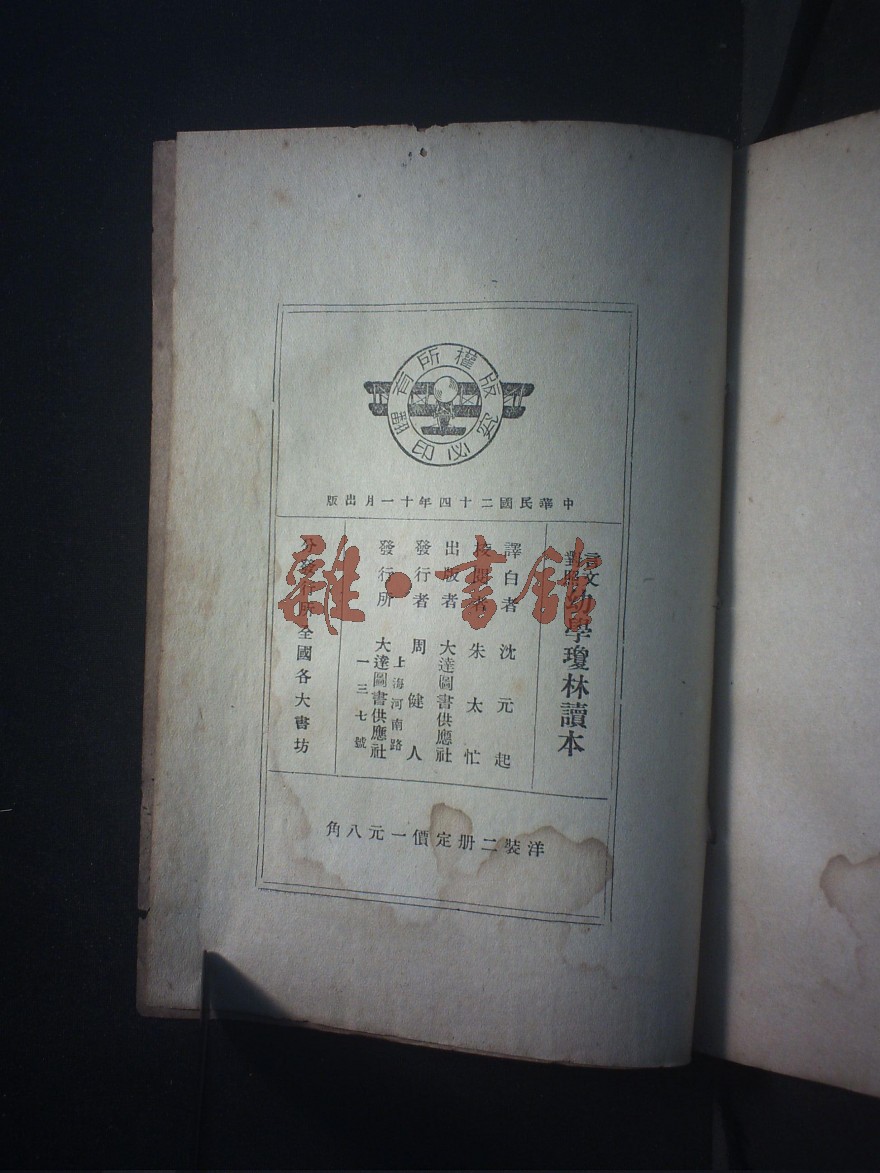 版權所有
翻印必究
中華民國二十四年十一月出版
言文對照幼學瓊林讀本
譯白者 沈元起
校閱者 朱太忙
出版者 大達圖書供應社
發行者 周健人
上海河南路一三七號
發行所 大達圖書供應社
分發行所全國各大書坊
洋裝二册定價一元八角
雜·書館